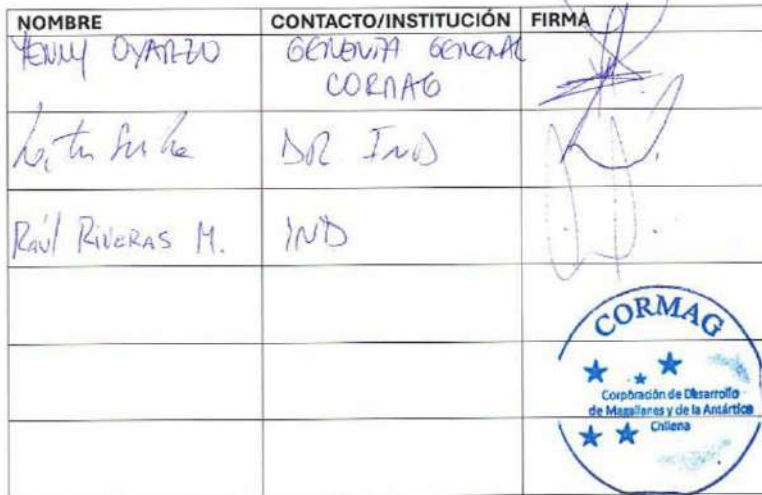 NOMBRE CONTACTO/INSTITUCIÓN FIRMA
YENNY OYARZO GERENTA GENERAL
CORMAG
DR IND
Raúl RIVERAS M. IND
CORMAG
Corporación de Desarrollo
de Magallanes y de la Antártica
Chilena